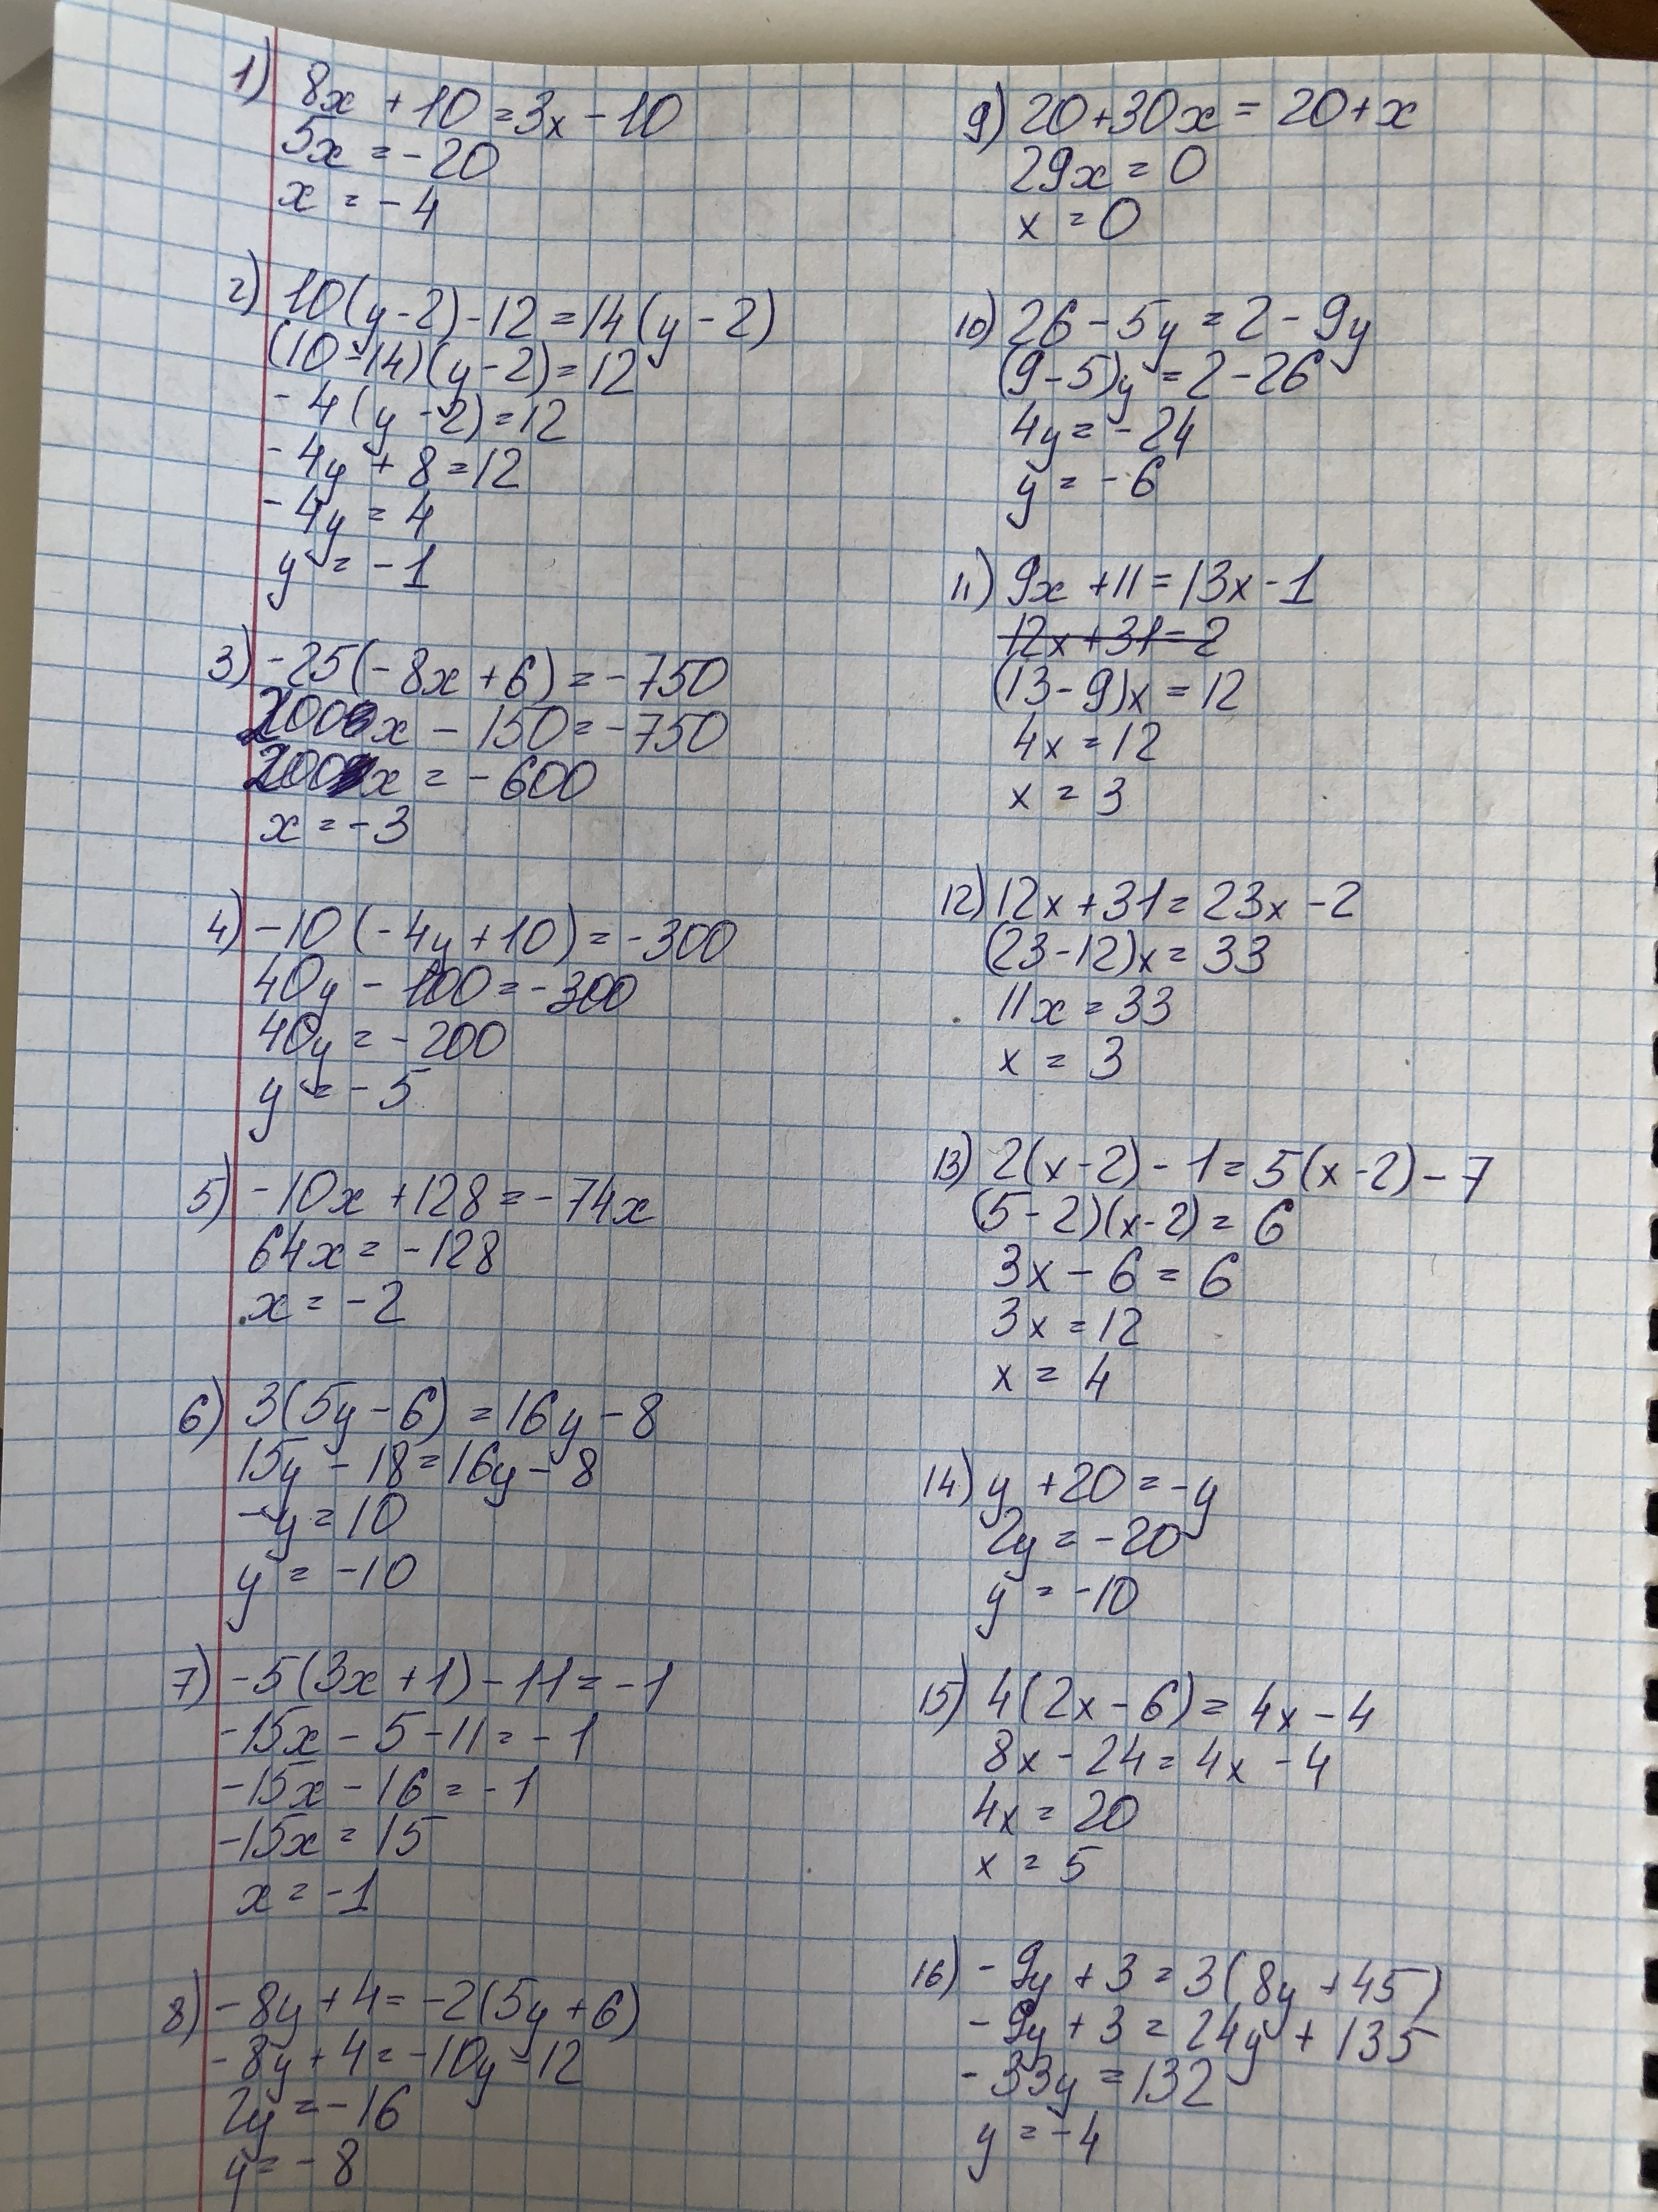 1) 8x + 10 = 3x - 10
5x = - 20
x = - 4
2) 10(y - 2) - 12 = 14(y - 2)
(10 - 14)(y - 2) = 12
- 4(y - 2) = 12
- 4y + 8 = 12
- 4y = 4
y = - 1
3) - 25(- 8x + 6) = - 750
200x - 150 = - 750
200x = - 600
x = - 3
4) - 10(- 4y + 10) = - 300
40y - 100 = - 300
40y = - 200
y = - 5
5) - 10x + 128 = - 74x
64x = - 128
x = - 2
6) 3(5y - 6) = 16y - 8
15y - 18 = 16y - 8
- y = 10
y = - 10
7) - 5(3x + 1) - 11 = - 1
- 15x - 5 - 11 = - 1
- 15x - 16 = - 1
- 15x = 15
x = - 1
8) - 8y + 4 = - 2(5y + 6)
- 8y + 4 = - 10y - 12
2y = - 16
y = - 8
9) 20 + 30x = 20 + x
29x = 0
x = 0
10) 26 - 5y = 2 - 9y
(9 - 5)y = 2 - 26
4y = - 24
y = - 6
11) 9x + 11 = 13x - 1
12x + 31 = 2
(13 - 9)x = 12
4x = 12
x = 3
12) 12x + 31 = 23x - 2
(23 - 12)x = 33
11x = 33
x = 3
13) 2(x - 2) - 1 = 5(x - 2) - 7
(5 - 2)(x - 2) = 6
3x - 6 = 6
3x = 12
x = 4
14) y + 20 = - y
2y = - 20
y = - 10
15) 4(2x - 6) = 4x - 4
8x - 24 = 4x - 4
4x = 20
x = 5
16) - 9y + 3 = 3(8y + 45)
- 9y + 3 = 24y + 135
- 33y = 132
y = - 4